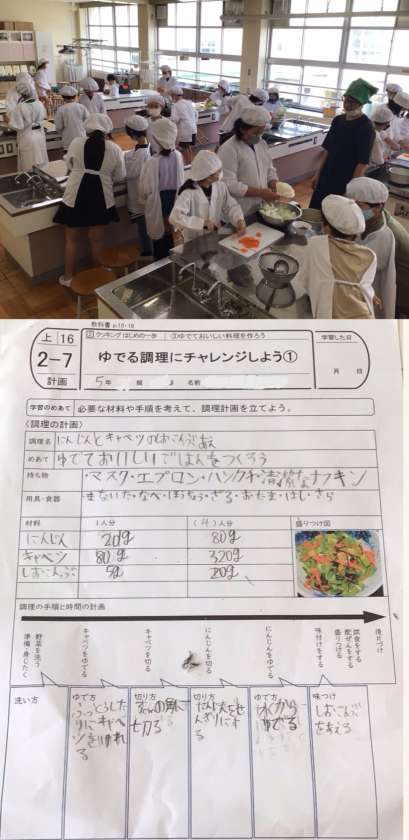 教科書 p.16・18
上 16
2-7
計画
2 クッキング はじめの一歩
③ゆでておいしい料理を作ろう
ゆでる調理にチャレンジしよう①
5年 組 名前
学習した日
月 日
学習のめあて
必要な材料や手順を考えて、調理計画を立てよう。
〈調理の計画〉
調理名
にんじんとキャベツのしおこんぶあえ
めあて
ゆでておいしいごはんをつくろう
持ち物
・マスク・エプロン・ハンカチ・清潔なナフキン
用具・食器
まないた・なべ・ほうちょう・ざる・おたま・はし・さら
材料 1人分 (4)人分 盛りつけ図
にんじん 20g 80g
キャベツ 80g 320g
しおこんぶ 5g 20g
調理の手順と時間の計画
準備・身じたく
野菜を洗う
キャベツをゆでる
キャベツを切る
にんじんを切る
にんじんをゆでる
味付けをする
盛りつける
配ぜんをする
試食をする
後片づけ
洗い方
ゆで方
ふっとうしたらりにキャベツをいれる
切り方
切る
切り方
せんぎりにする
ゆで方
水からゆでる
味つけ
しおこんぶを